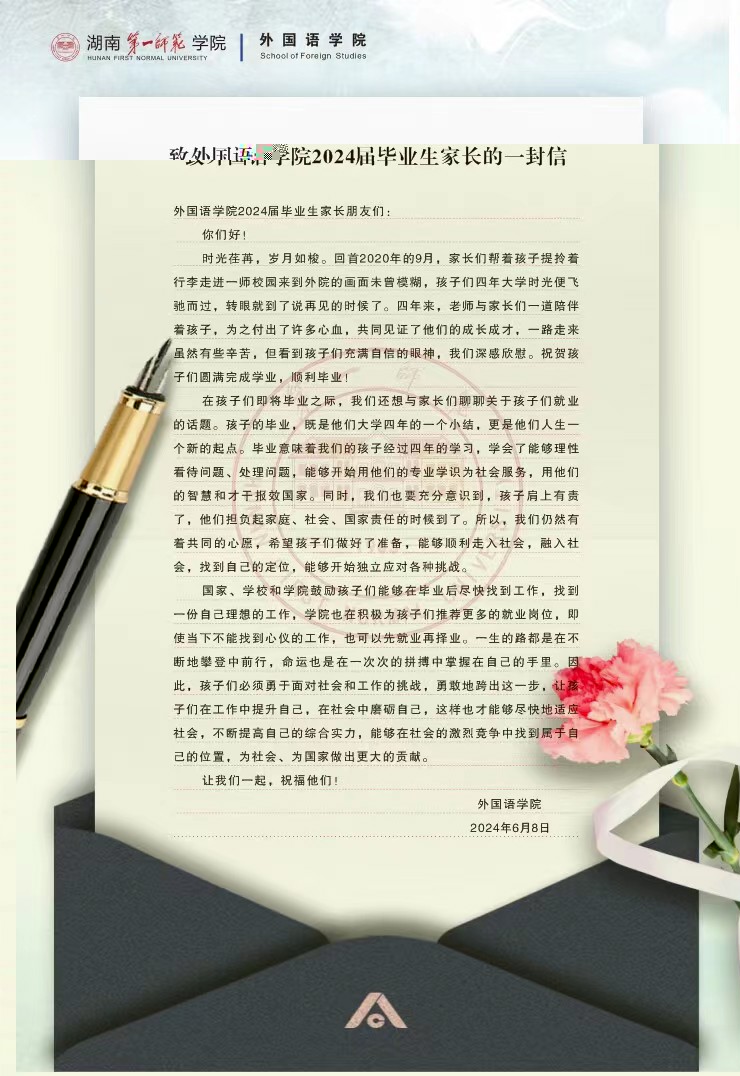 湖南第一师范学院
HUNAN FIRST NORMAL UNIVERSITY
外国语学院
School of Foreign Studies
致外国语学院2024届毕业生家长的一封信
外国语学院2024届毕业生家长朋友们：
你们好！
时光荏苒，岁月如梭。回首2020年的9月，家长们帮着孩子提拎着
行李走进一师校园来到外院的画面未曾模糊，孩子们四年大学时光便飞
驰而过，转眼就到了说再见的时候了。四年来，老师与家长们一道陪伴
着孩子，为之付出了许多心血，共同见证了他们的成长成才，一路走来
虽然有些辛苦，但看到孩子们充满自信的眼神，我们深感欣慰。祝贺孩
子们圆满完成学业，顺利毕业！
在孩子们即将毕业之际，我们还想与家长们聊聊关于孩子们就业
的话题。孩子的毕业，既是他们大学四年的一个小结，更是他们人生一
个新的起点。毕业意味着我们的孩子经过四年的学习，学会了能够理性
看待问题、处理问题，能够开始用他们的专业学识为社会服务，用他们
的智慧和才干报效国家。同时，我们也要充分意识到，孩子肩上有责
了，他们担负起家庭、社会、国家责任的时候到了。所以，我们仍然有
着共同的心愿，希望孩子们做好了准备，能够顺利走入社会，融入社
会，找到自己的定位，能够开始独立应对各种挑战。
国家、学校和学院鼓励孩子们能够在毕业后尽快找到工作，找到
一份自己理想的工作，学院也在积极为孩子们推荐更多的就业岗位，即
使当下不能找到心仪的工作，也可以先就业再择业。一生的路都是在不
断地攀登中前行，命运也是在一次次的拼搏中掌握在自己的手里。因
此，孩子们必须勇于面对社会和工作的挑战，勇敢地跨出这一步，让孩
子们在工作中提升自己，在社会中磨砺自己，这样也才能够尽快地适应
社会，不断提高自己的综合实力，能够在社会的激烈竞争中找到属于自
己的位置，为社会、为国家做出更大的贡献。
让我们一起，祝福他们！
外国语学院
2024年6月8日